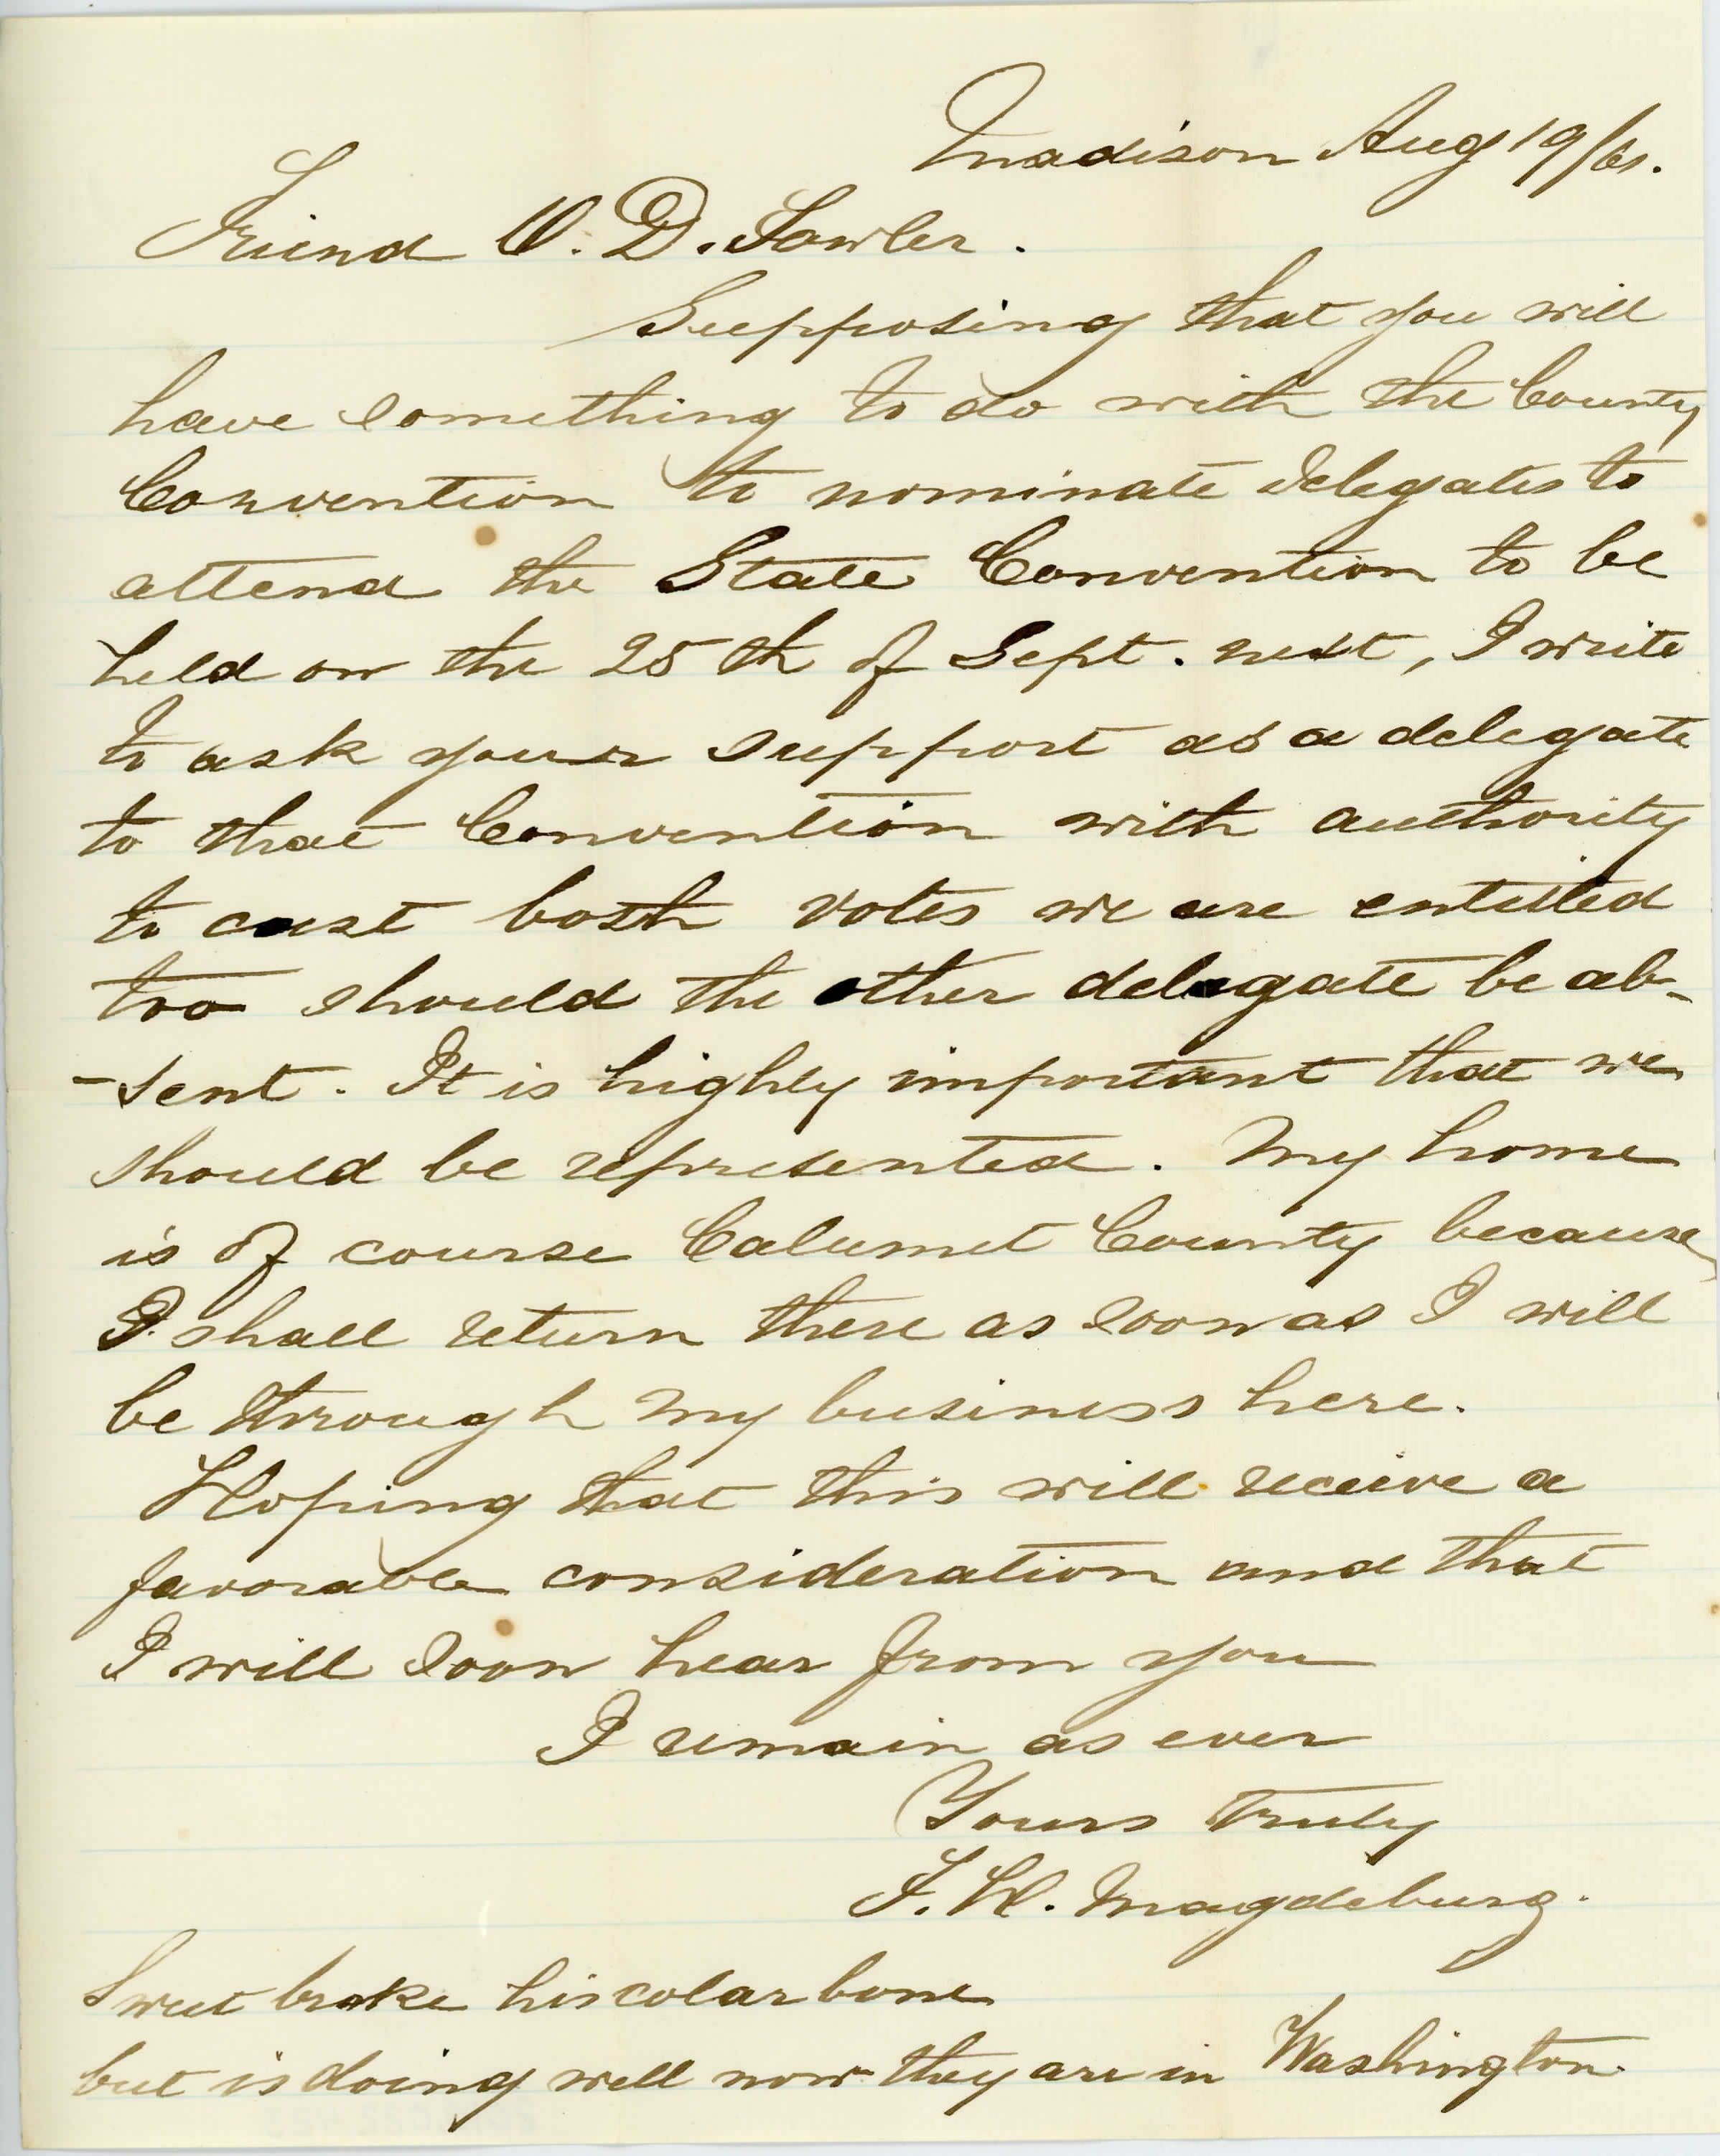 Madison Aug 19/61.
Friend O. D. Fowler.
Supposing that you will
have something to do with the County
Convention to nominate delegates to
attend the State Convention to be
held on the 25th of Sept. next, I write
to ask your support as a delegate
to that Convention with authority
to cast both votes we are entitled
too should the other delegate be ab-
-sent. It is highly important that we
should be represented. My home
is of course Calumet County because
I shall return there as soon as I will
be through my business here.
Hoping that this will receive a
favorable consideration and that
I will soon hear from you
I remain as ever
Yours truly
F. H. Magdeburg.
Sweet broke his colar bone
but is doing well now they are in Washington.